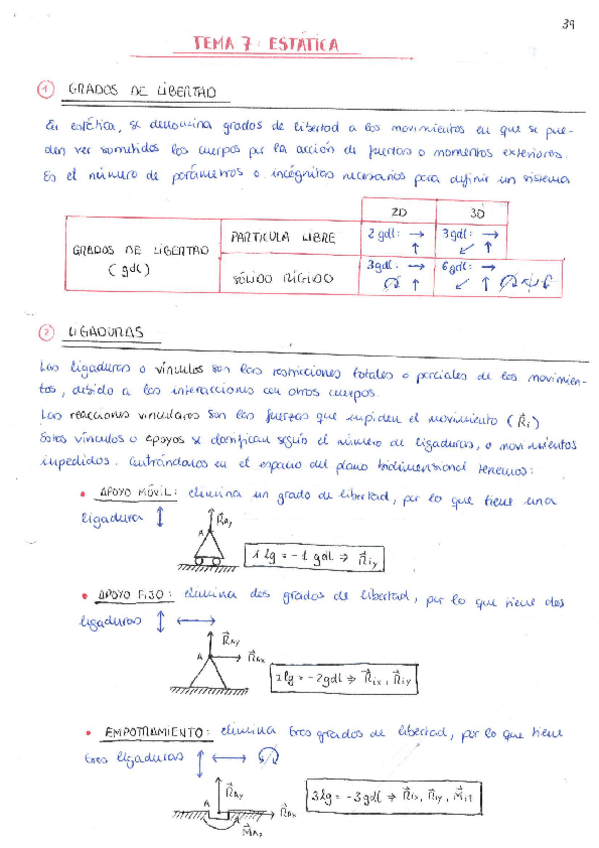 39
TEMA 7: ESTÁTICA
1 GRADOS DE LIBERTAD
En estética, se denomina grados de libertad a los movimientos en que se pue-
den ver sometidos los cuerpos por la acción de fuerzas o momentos exteriores.
Es el número de parámetros o incógnitas necesarios para definir un sistema
2D 3D
GRADOS DE LIBERTAD (gdl)
PARTICULA LIBRE 2gdl: → ↑ 3gdl: → ↙ ↑
SÓLIDO RÍGIDO 3gdl: → ↑ 6gdl: → ↙ ↑
2 LIGADURAS
Las ligaduras o vínculos son las restricciones totales o parciales de los movimien-
tos, debido a las interacciones con otros cuerpos.
Las reacciones vinculares son las fuerzas que impiden el movimiento (R⃗i)
Estos vínculos o apoyos se clasifican según el número de ligaduras, o movimientos
impedidos. Centrándonos en el espacio del plano bidimensional tenemos:
• APOYO MÓVIL: elimina un grado de libertad, por lo que tiene una
ligadura ↕
R⃗Ay
A
1 lg = -1 gdl ⇒ R⃗iy
• APOYO FIJO: elimina dos grados de libertad, por lo que tiene dos
ligaduras ↕ ↔
R⃗Ay
A R⃗Ax
2lg = -2gdl ⇒ R⃗ix, R⃗iy
• EMPOTRAMIENTO: elimina tres grados de libertad, por lo que tiene
tres ligaduras ↕ ↔
R⃗Ay
A R⃗Ax
3lg = -3gdl ⇒ R⃗ix, R⃗iy, M⃗iz